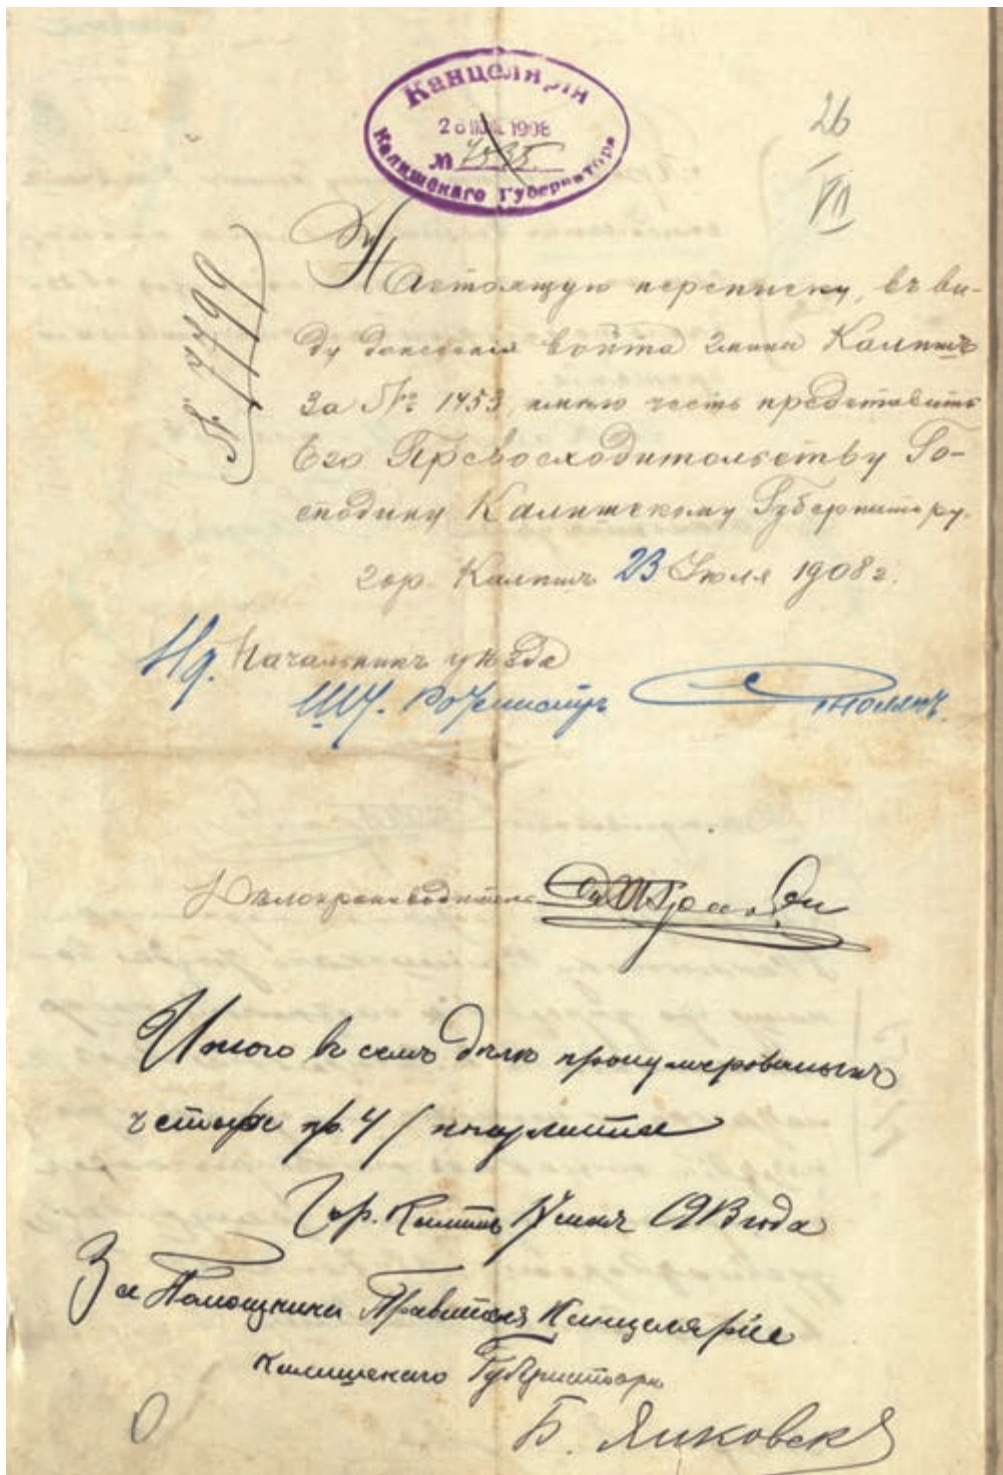 Канцелярія
26 ІЮЛ. 1908
№ 7535
Калишскаго Губернатора
26
VII
№ 7799
Настоящую переписку, въ ви-
ду донесенія войта гмины Калишъ
за № 1453, имѣю честь представить
Его Превосходительству Го-
сподину Калишскому Губернатору.
гор. Калишъ 23 Іюля 1908 г.
Начальникъ уѣзда
Ротмистръ
Дѣлопроизводитель
Итого въ семъ дѣлѣ пронумерованныхъ
четыре /4/ листа
Гор. Калишъ 1913 года
За Помощника Правителя Канцеляріи
Калишскаго Губернатора
Б. Янковскі